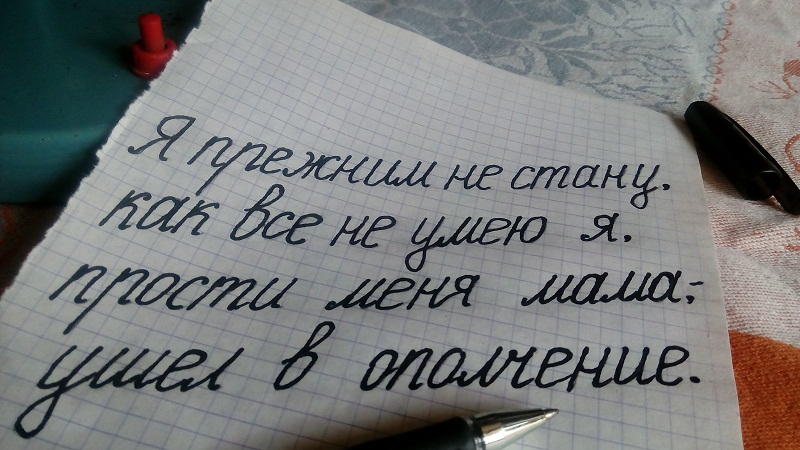 Я прежним не стану.
как все не умею я.
прости меня мама;-
ушел в ополчение.